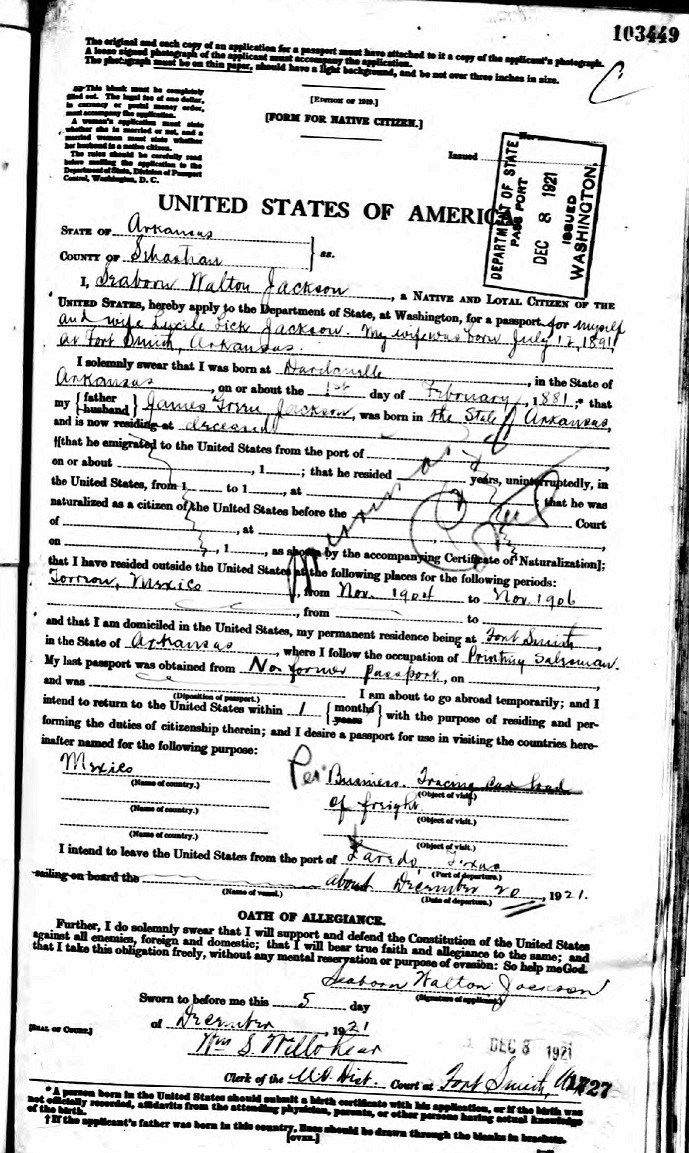 103449
The original and each copy of an application for a passport must have attached to it a copy of the applicant's photograph.
A loose signed photograph of the applicant must accompany the application.
The photograph must be on thin paper, should have a light background, and be not over three inches in size.
C
This blank must be completely
filled out. The legal fee of one dollar,
in currency or postal money order,
must accompany the application.
A woman's application must state
whether she is married or not, and a
married woman must state whether
her husband is a native citizen.
The rules should be carefully read
before mailing the application to the
Department of State, Division of Passport
Control, Washington, D. C.
[EDITION OF 1919.]
[FORM FOR NATIVE CITIZEN.]
Issued
DEPARTMENT OF STATE
PASSPORT
DEC 8 1921
ISSUED
WASHINGTON
UNITED STATES OF AMERICA
STATE OF Arkansas
COUNTY OF Sebastian } ss.
I, Seaborn Walton Jackson, a NATIVE AND LOYAL CITIZEN OF THE
UNITED STATES, hereby apply to the Department of State, at Washington, for a passport for myself
and wife Lucile Lick Jackson. My wife was born July 12, 1891
at Fort Smith, Arkansas.
I solemnly swear that I was born at Dardanelle, in the State of
Arkansas, on or about the 1st day of February, 1881;* that
my {father husband} James Jackson, was born in the State of Arkansas,
and is now residing at deceased
†[that he emigrated to the United States from the port of
on or about , 1 ; that he resided years, uninterruptedly, in
the United States, from 1 to 1 , at , that he was
naturalized as a citizen of the United States before the Court
of , at ,
on , 1 , as shown by the accompanying Certificate of Naturalization];
that I have resided outside the United States at the following places for the following periods:
Torreon, Mexico, from Nov. 1904 to Nov. 1906
, from to
and that I am domiciled in the United States, my permanent residence being at Fort Smith,
in the State of Arkansas, where I follow the occupation of Printing Salesman.
My last passport was obtained from No former passport, on
and was (Disposition of passport.) I am about to go abroad temporarily; and I
intend to return to the United States within 1 {months years} with the purpose of residing and per-
forming the duties of citizenship therein; and I desire a passport for use in visiting the countries here-
inafter named for the following purpose:
Mexico Business. Tracing car load
(Name of country.) (Object of visit.)
of freight
(Name of country.) (Object of visit.)
(Name of country.) (Object of visit.)
I intend to leave the United States from the port of Laredo, Texas
(Port of departure.)
sailing on board the about December 20, 1921.
(Name of vessel.) (Date of departure.)
OATH OF ALLEGIANCE.
Further, I do solemnly swear that I will support and defend the Constitution of the United States
against all enemies, foreign and domestic; that I will bear true faith and allegiance to the same; and
that I take this obligation freely, without any mental reservation or purpose of evasion: So help me God.
Seaborn Walton Jackson
(Signature of applicant.)
Sworn to before me this 5 day
of December, 1921
[SEAL OF COURT.]
Wm S. Wellshear
DEC 8 1921
Clerk of the U.S. Dist. Court at Fort Smith, Ark
1727
*A person born in the United States should submit a birth certificate with his application, or if the birth was
not officially recorded, affidavits from the attending physician, parents, or other persons having actual knowledge
of the birth.
†If the applicant's father was born in this country, lines should be drawn through the blanks in brackets.
[OVER.]